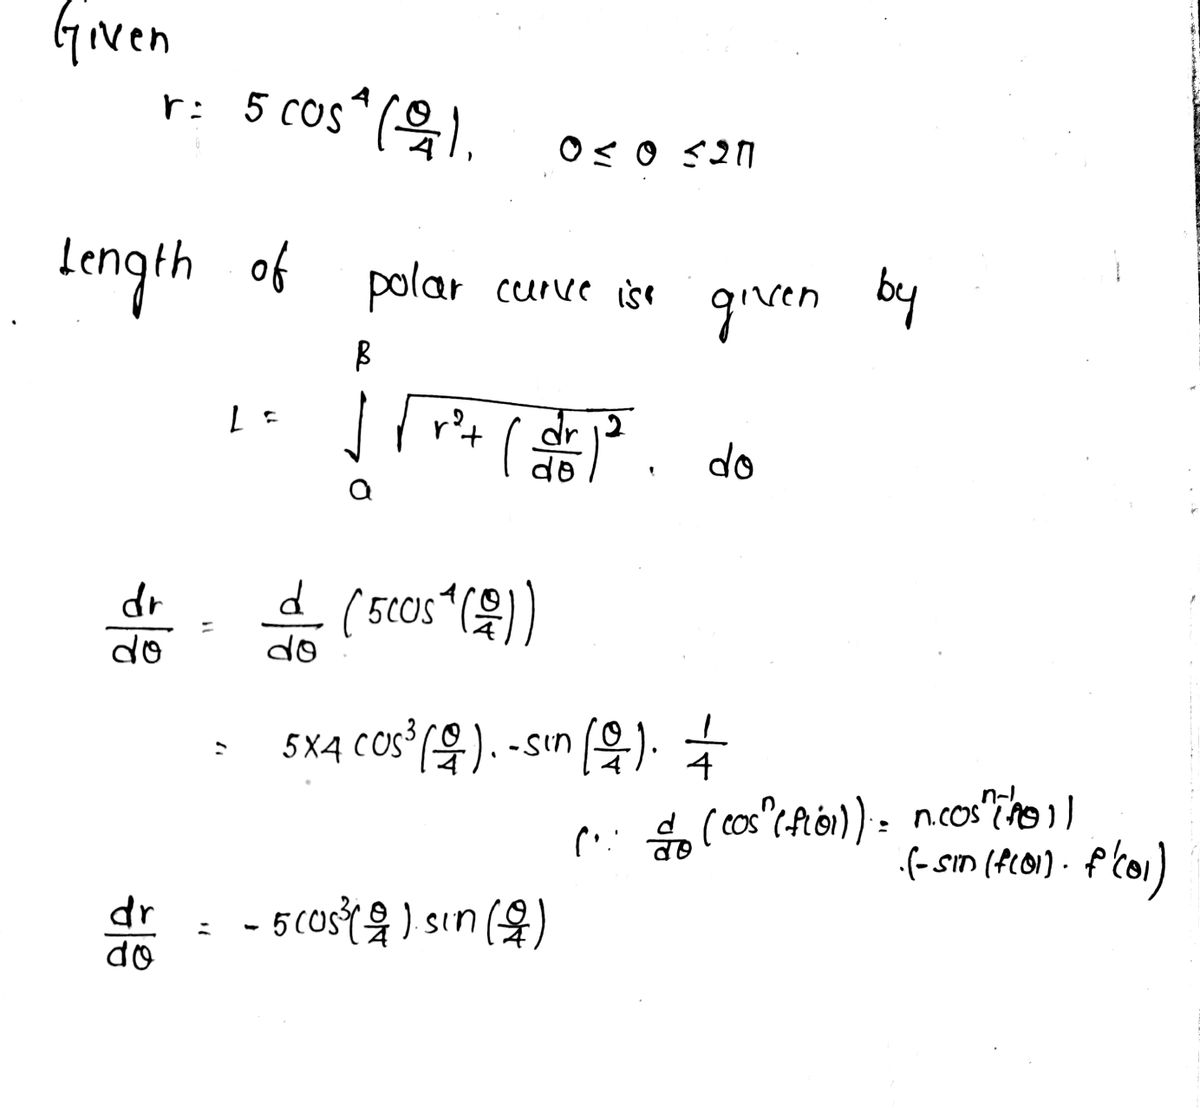 Given
r = 5 cos⁴(θ/4), 0 ≤ θ ≤ 2π
Length of polar curve is given by
L = ∫ₐᵝ √(r² + (dr/dθ)²) . dθ
dr/dθ = d/dθ (5cos⁴(θ/4))
= 5×4 cos³(θ/4) . -sin(θ/4) . 1/4
(∵ d/dθ (cosⁿ(f(θ))) = n.cosⁿ⁻¹(f(θ))
.(-sin(f(θ)) . f'(θ))
dr/dθ = - 5cos³(θ/4) . sin(θ/4)